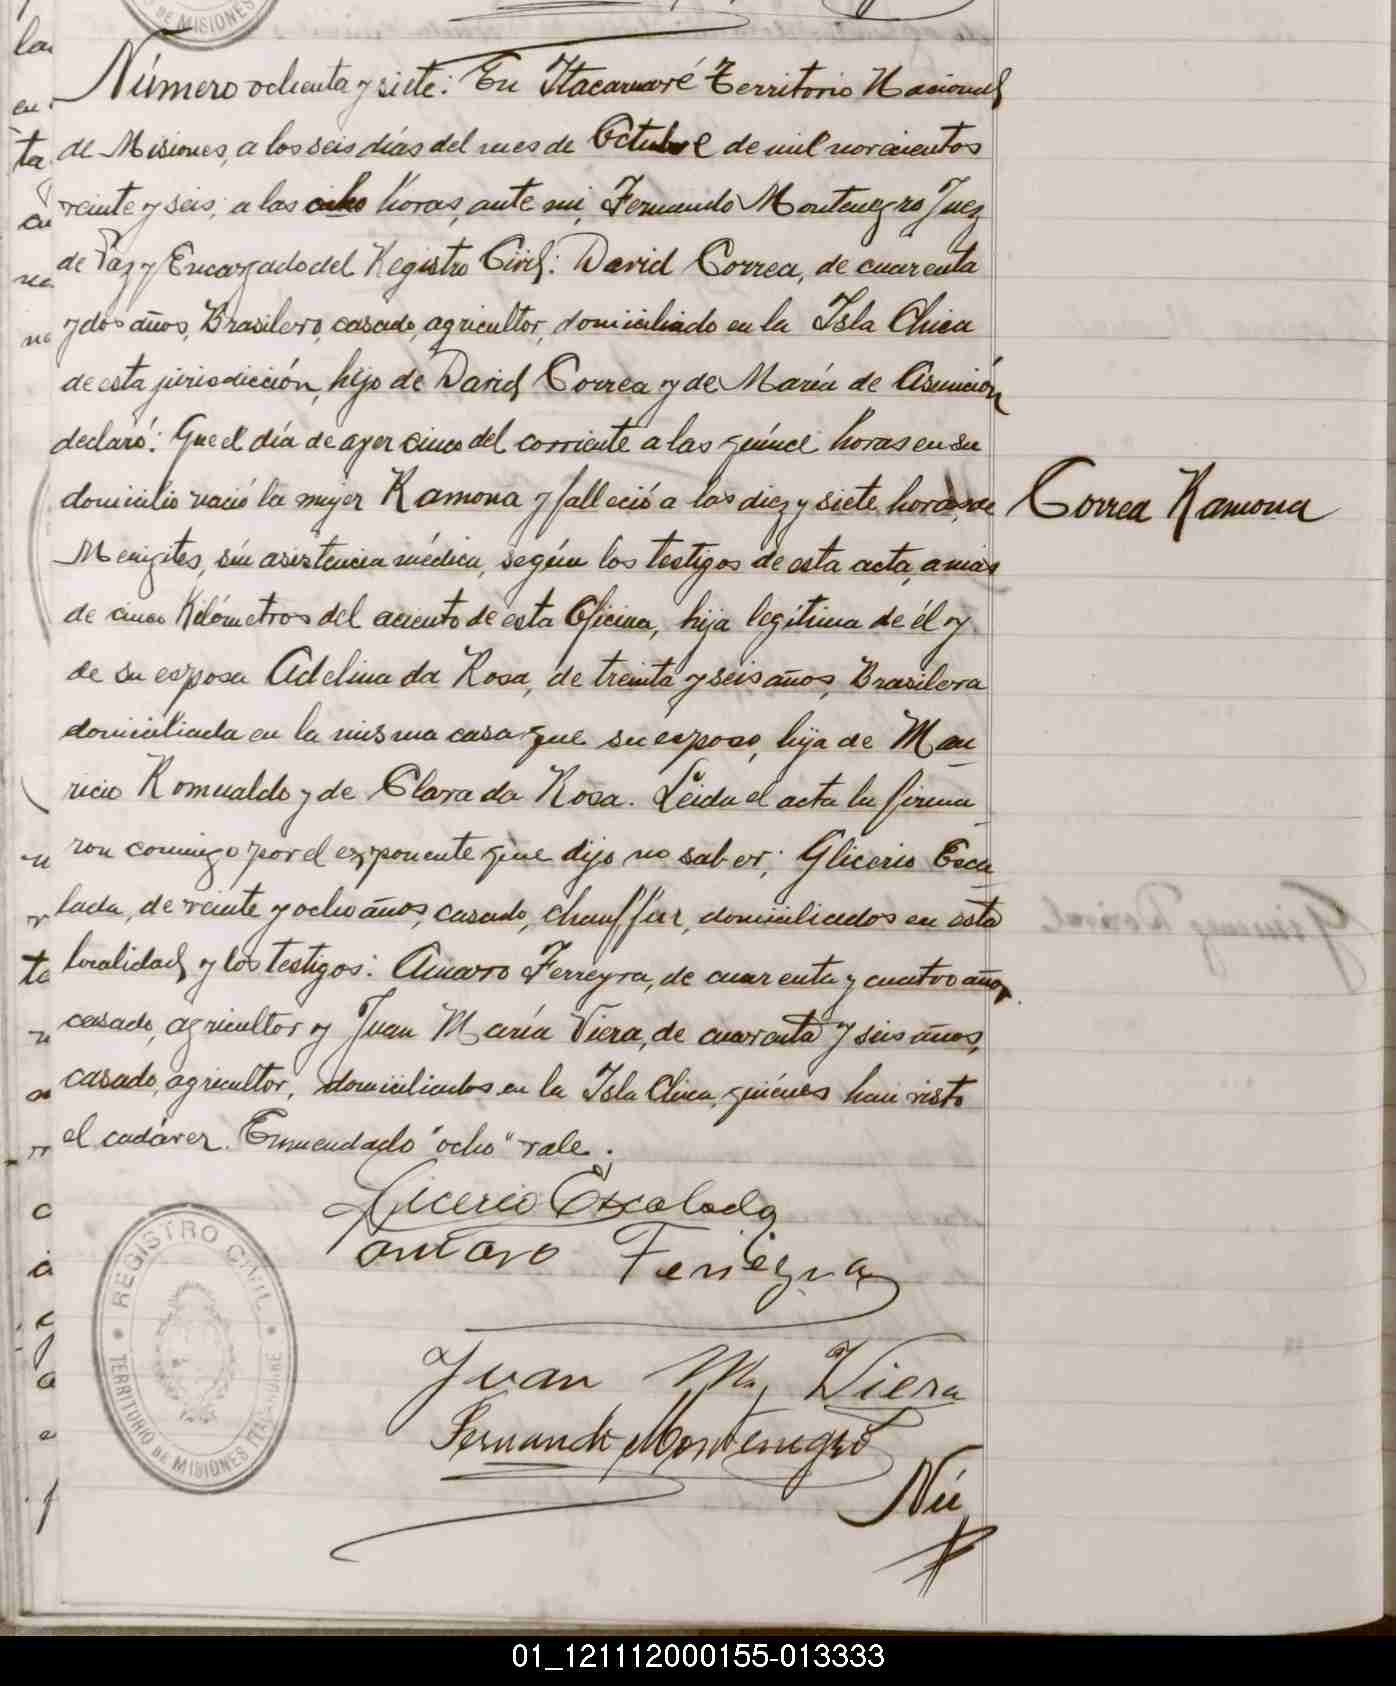 Número ochenta y siete: En Itacaruaré Territorio Nacional
de Misiones, a los seis días del mes de Octubre de mil novecientos
veinte y seis, a las ocho horas, ante mi, Fernando Montenegro Juez
de Paz y Encargado del Registro Civil: David Correa, de cuarenta
y dos años, Brasilero, casado, agricultor, domiciliado en la Isla Chica
de esta jurisdicción, hijo de David Correa y de María de Asunción
declaró: Que el día de ayer cinco del corriente a las quince horas en su
domicilio nació la mujer Ramona y falleció a las diez y siete horas, de
Correa Ramona
Menigites, sin asistencia médica, según los testigos de esta acta, a mas
de cinco Kilómetros del aciento de esta Oficina, hija legítima de él y
de su esposa Adelina da Rosa, de treinta y seis años, Brasilera
domiciliada en la misma casa que su esposo, hija de Mau-
ricio Romualdo y de Clara da Rosa. Leida el acta la firma-
ron comigo por el exponente que dijo no saber; Glicerio Esca-
lada, de veinte y ocho años, casado, chauffur, domiciliados en esta
localidad y los testigos: Amaro Ferreyra, de cuarenta y cuatro años
casado, agricultor y Juan María Viera, de cuarenta y seis años,
casado, agricultor, domiciliados en la Isla Chica, quiénes han visto
el cadáver. Enmendado "ocho" vale.
Licerio Escalada
Amaro Ferreyra
Juan Ma Viera
Fernando Montenegro
Nú
REGISTRO CIVIL
TERRITORIO DE MISIONES ITACARUARE
01_121112000155-013333